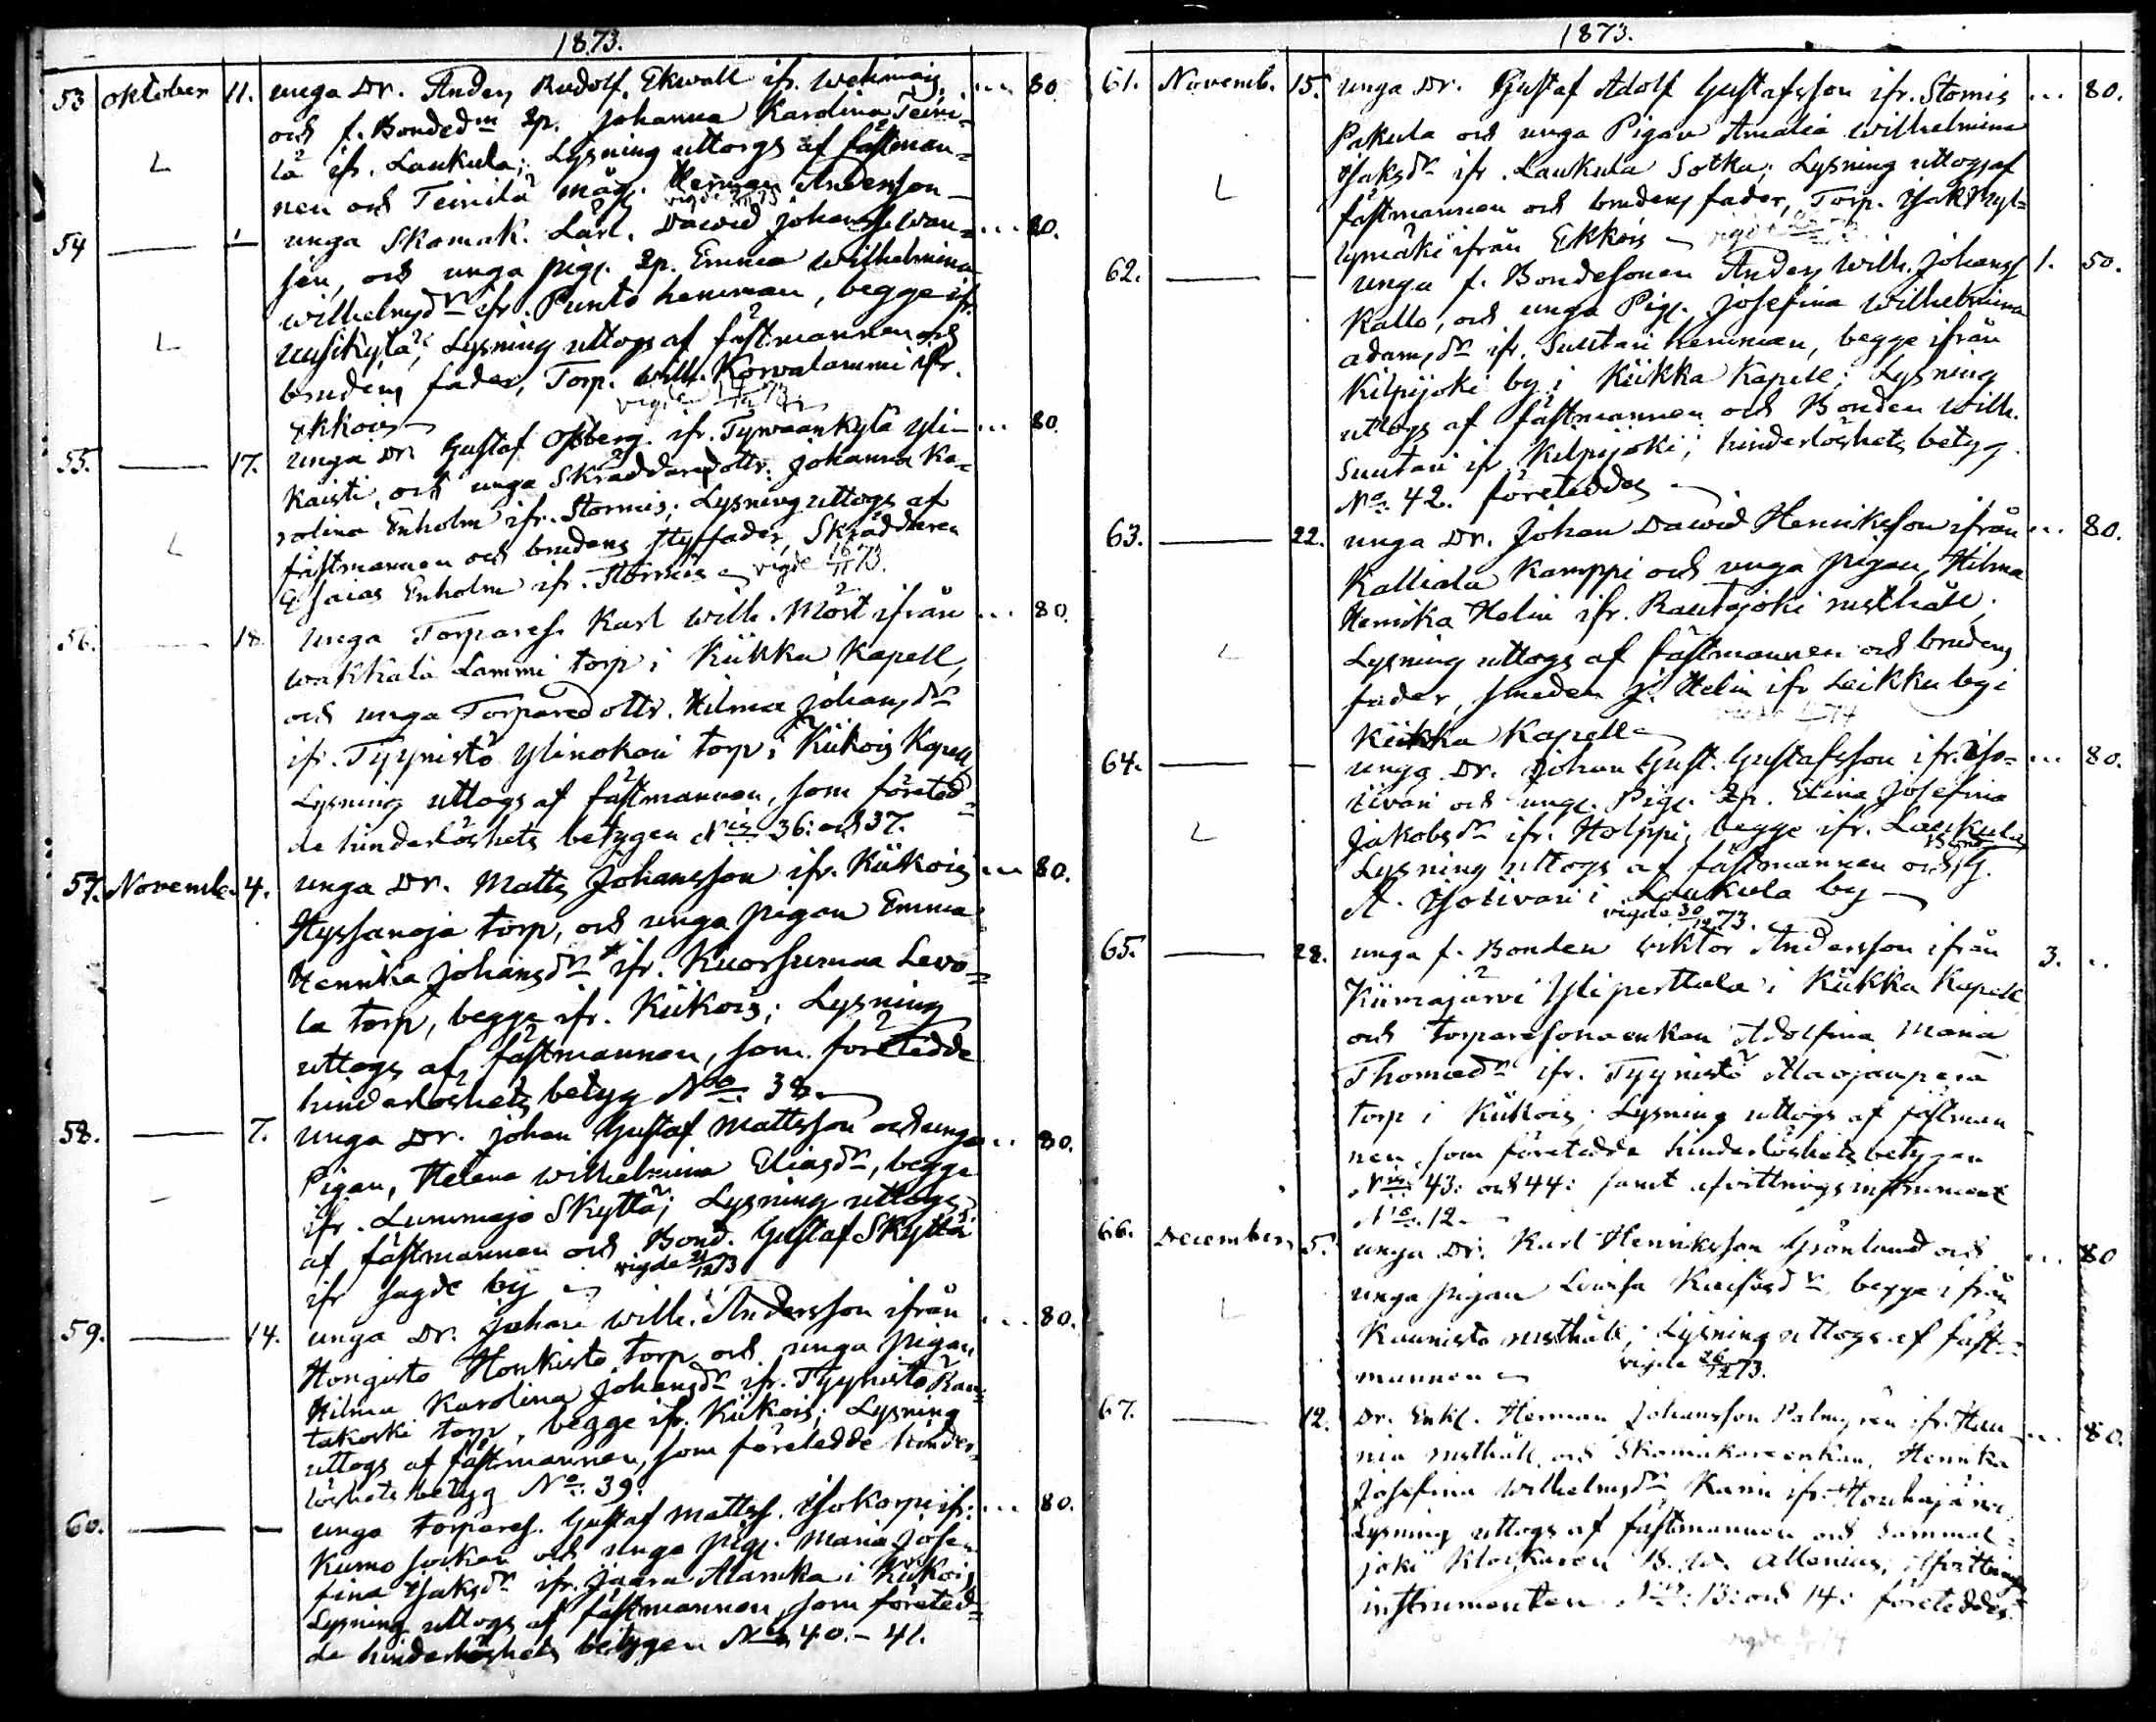 1873.
53 oktober 11. unga Dr. Anders Rudolf Ekwall ifr. Wehmais ... 80.
och f. Bondedn Jp. Johanna Karolina Teini=
lä ifr. Laukula; Lysning uttogs af fästman=
nen och Teinilä måg. Herman Andersson
54 — unga Skomak. Lärl. Dawid Johanss. Wan= ... 80.
sen, och unga pig. Jp. Emma Wilhelmina
Wilhelmsdr ifr. Punto hemman, begge ifr.
Uusikylä; Lysning uttogs af fästmannen och
brudens fader, Torp. Wilh. Korwalammi ifr.
Ekkois
55. — 17. unga Dr Gustaf Ossberg ifr. Tyrwäänkylä yli= ... 80.
Kaisti, och unga Skräddaredottr. Johanna Ka=
rolina Enholm ifr. Stormis; Lysning uttogs af
fästmannen och brudens styffader, Skräddaren
Esaias Enholm ifr. Stormis vigde 16/11 73.
56. — 18. unga Torpares. Karl Wilh. Mört ifrån ... 80.
Wakkala Lammi torp i Kiikka Kapell,
och unga Torparedottr. Hilma Johansdr
ifr. Tyynistö Ylinokan torp i Kiikois Kapell
Lysning uttogs af fästmannen, som företed=
de hinderlöshets betygen Nis 36: och 37.
57. Novemb. 4. unga Dr. Matts Johansson ifr. Kiikois ... 80.
Hyssanoja torp, och unga pigan Emma
Henrika Johansdr ifr. Kuorsumaa Levo=
la torp, begge ifr. Kiikois; Lysning
uttogs af fästmannen, som företedde
hinderlöshets betyg No 38.
58. — 7. unga Dr. Johan Gustaf Mattsson och unga ... 80.
Pigan, Helena Wilhelmina Eliasdr, begge
ifr. Lummaja Skyttä; Lysning uttogs
af fästmannen och Bond. Gustaf Skyttä
ifr Sagde by vigde 21/12 73
59. — 14. unga Dr. Johan Wilh. Andersson ifrån ... 80.
Hongisto Honkisto torp och unga pigan
Hilma Karolina Johansdr ifr. Tyynistö Rau=
takoski torp, begge ifr. Kiikois; Lysning
uttogs af fästmannen, som företedde hinder
löshets betyg No 39.
60. — unga torpares. Gustaf Mattss. Isokorpi ifr. ... 80.
Kumo socken och unga pig. Maria Jose
fina Isaksdr ifr. Jaara Alanika i Kiikois
Lysning uttogs af fästmannen, som företed=
de hinderlöshets betygen Nis 40. - 41.
1873.
61. Novemb. 15. unga Dr. Gustaf Adolf Gustafsson ifr. Stomis ... 80.
Pakula och unga Pigan Amalia Wilhelmina
Isaksdr ifr. Laukula Sotka; Lysning uttogs af
fästmannen och brudens fader, Torp. Isak Myl=
lymäki ifrån Ekkois
62. — unga f. Bondesonen Anders Wilh. Johanss. 1. 50.
Kallo, och unga Pig. Josefina Wilhelmina
Adamsdr ifr. Suutari hemman, begge ifrån
Kilpijoki by i Kiikka Kapell; Lysning
uttogs af fästmannen och Bonden Wilh.
Suutari ifr. Kilpijoki; hinderlöshets betyg
No 42. företeddes
63. — 22. unga Dr. Johan Dawid Henriksson ifrån ... 80.
Kalliala Kamppi och unga pigan, Hilma
Henrika Helin ifr. Rautajoki rusthåll;
Lysning uttogs af fästmannen och brudens
fader, smeden J. Helin ifr Leikku by i
Kiikka Kapell
64. — unga Dr. Johan Gust. Gustafsson ifr. Iso= ... 80.
tivari och unga Pig. Jp. Elina Josefina
Jakobsdr ifr. Holppi, begge ifr. Laukula
Lysning uttogs af fästmannen och Bond. G.
A. Isotivari i Laukula by
vigde 30/12 73.
65. — 28. unga f. Bonden Wiktor Andersson ifrån 3. ..
Kiimajärwi Yliperttula i Kiikka Kapell
och torparesonaenkan Adolfina Maria
Thomaedr ifr. Tyynistö Alaojanperä
torp i Kiikois; Lysning uttogs af fästman
nen, som företedde hinderlöshets betygen
Nis 43: och 44: samt afvittrings instrument
No 12.
66. December 5. unga Dr. Karl Henriksson Grönlund och ... 80
unga pigan Lovisa begge ifrån
Kaunisto rusthåll; Lysning uttogs af fäst=
mannen vigde 26/12 73.
67. — 12. Dr. Enkl. Herman Johansson Palmgren ifr. Han ... 80.
nia rusthåll och Skomakareenkan, Henrika
Josefina Wilhelmsdr Kani ifr. Houhajärwi
Lysning uttogs af fästmannen och Sammal=
joki Klockaren B. W. Allenius; Afvittrings
instrumenten Nis: 13: och 14: företeddes.